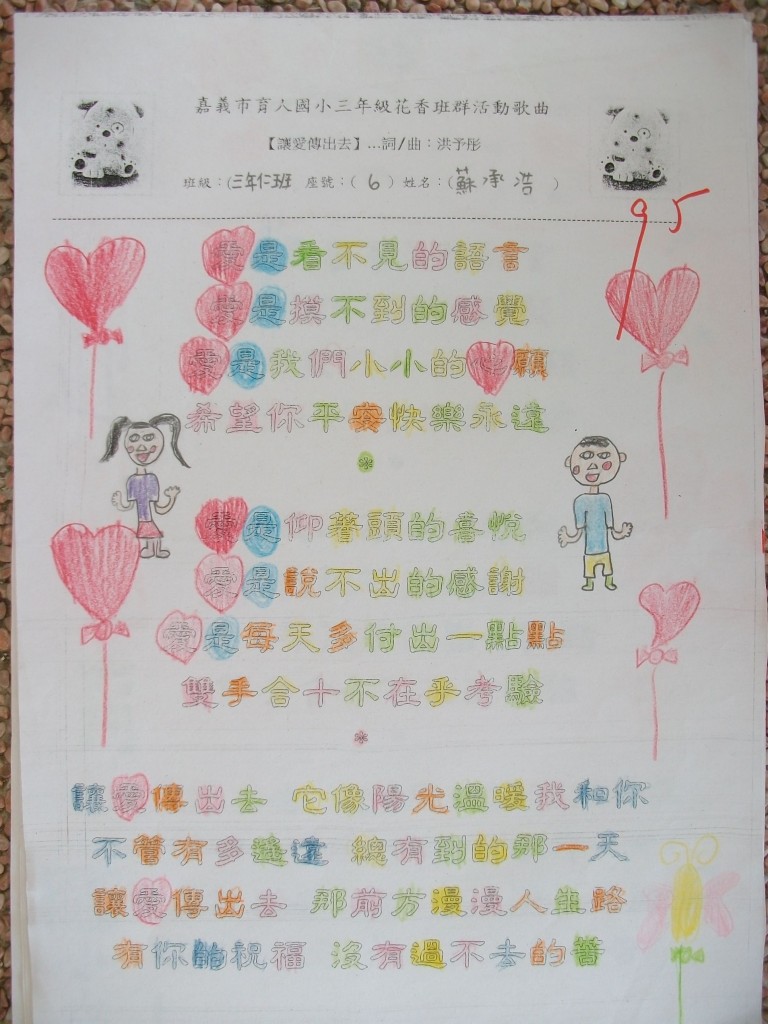 嘉義市育人國小三年級花香班群活動歌曲
【讓愛傳出去】…詞/曲：洪予彤
班級：(三年仁班 座號：( 6 ) 姓名：(蘇承浩 )
95
愛是看不見的語言
愛是摸不到的感覺
愛是我們小小的心願
希望你平安快樂永遠
*
愛是仰著頭的喜悅
愛是說不出的感謝
愛是每天多付出一點點
雙手合十不在乎考驗
*
讓愛傳出去 它像陽光溫暖我和你
不管有多遙遠 總有到的那一天
讓愛傳出去 那前方漫漫人生路
有你的祝福 沒有過不去的苦